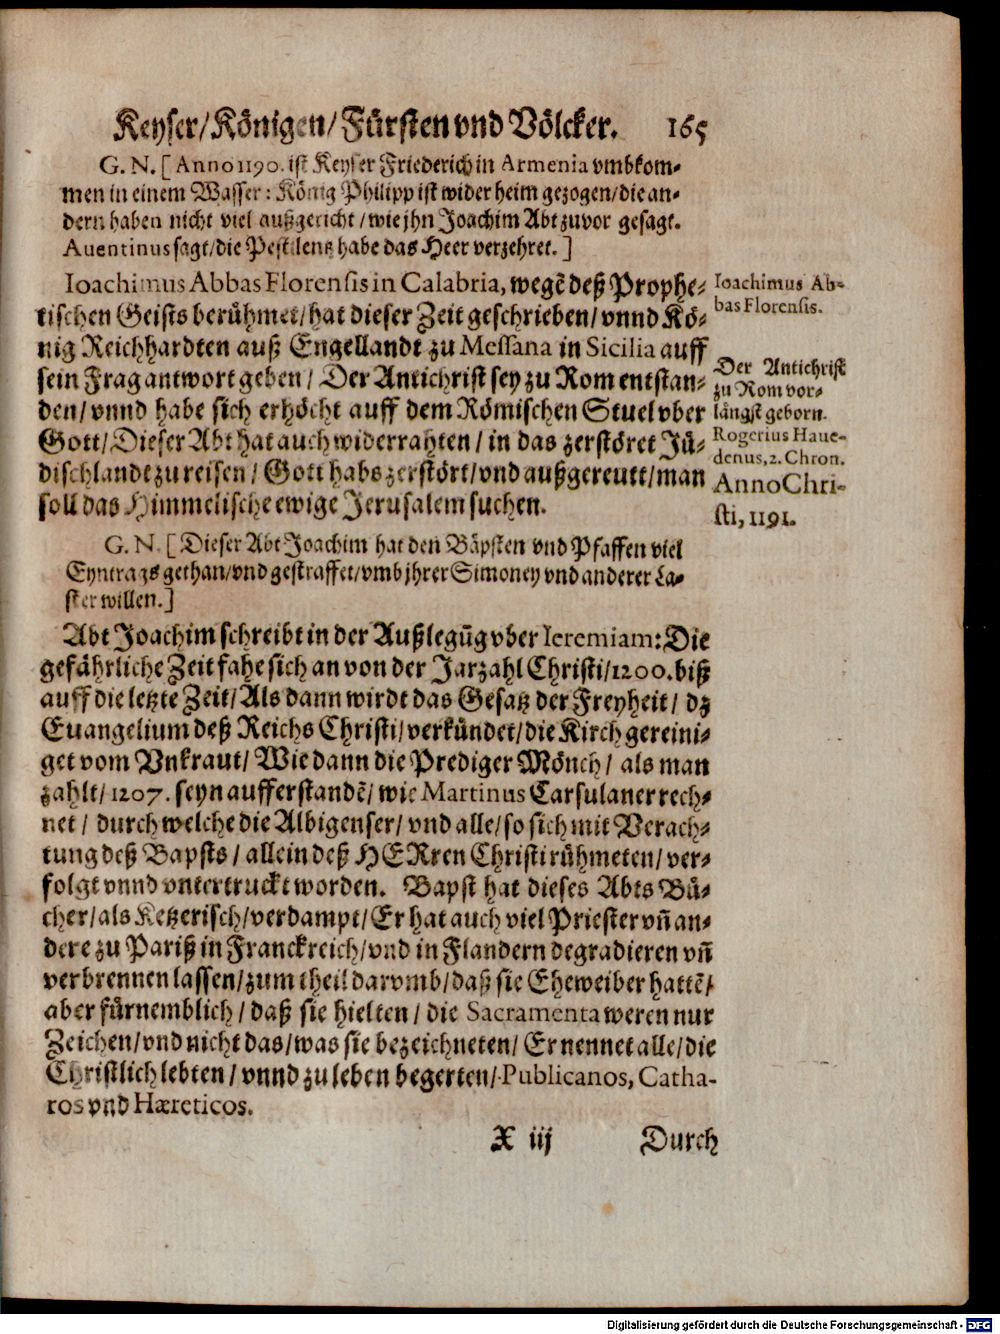 Keyser/Königen/Fürsten vnd Völcker. 165
G. N. [Anno 1190. ist Keyser Friederich in Armenia vmbkom-
men in einem Wasser: König Philipp ist wider heim gezogen/die an-
dern haben nicht viel außgericht/wie jhn Joachim Abt zuvor gesagt.
Auentinus sagt/die Pestilentz habe das Heer verzehret.]
Ioachimus Abbas Florensis in Calabria, wegẽ deß Prophe-
tischen Geists berühmet/hat dieser Zeit geschrieben/vnnd Kö-
nig Reichhardten auß Engellandt zu Messana in Sicilia auff
sein Frag antwort geben/Der Antichrist sey zu Rom entstan-
den/vnnd habe sich erhöcht auff dem Römischen Stuel vber
Gott/Dieser Abt hat auch widerrahten/in das zerstöret Jü-
dischlandt zu reisen/Gott habs zerstört/vnd außgereutt/man
soll das Himmelische ewige Jerusalem suchen.
Ioachimus Ab-
bas Florensis.
Der Antichrist
zu Rom vor-
längst geborn.
Rogerius Haue-
denus, 2. Chron.
Anno Chri-
sti, 1191.
G. N. [Dieser Abt Joachim hat den Bäpsten vnd Pfaffen viel
Eyntrags gethan/vnd gestraffet/vmb jhrer Simoney vnd anderer La-
ster willen.]
Abt Joachim schreibt in der Außlegũg vber Ieremiam: Die
gefährliche Zeit fahe sich an von der Jarzahl Christi/1200. biß
auff die letzte Zeit/Als dann wirdt das Gesatz der Freyheit/dz
Euangelium deß Reichs Christi/verkündet/die Kirch gereini-
get vom Vnkraut/Wie dann die Prediger Mönch/als man
zahlt/1207. seyn aufferstandẽ/wie Martinus Carsulaner rech-
net/durch welche die Albigenser/vnd alle/so sich mit Verach-
tung deß Bapsts/allein deß HERren Christi rühmeten/ver-
folgt vnnd vntertruckt worden. Bapst hat dieses Abts Bü-
cher/als Ketzerisch/verdampt/Er hat auch viel Priester vñ an-
dere zu Pariß in Franckreich/vnd in Flandern degradieren vñ
verbrennen lassen/zum theil darvmb/daß sie Eheweiber hattẽ/
aber fürnemblich/daß sie hielten/die Sacramenta weren nur
Zeichen/vnd nicht das/was sie bezeichneten/Er nennet alle/die
Christlich lebten/vnnd zu leben begerten/Publicanos, Catha-
ros vnd Hæreticos.
X iij Durch
Digitalisierung gefördert durch die Deutsche Forschungsgemeinschaft - DFG